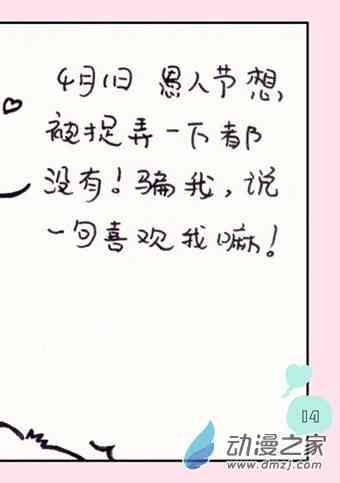 4月1日 愚人节想,
被捉弄一下都
没有!骗我,说
一句喜欢我嘛!
14
动漫之家
www.dmzj.com